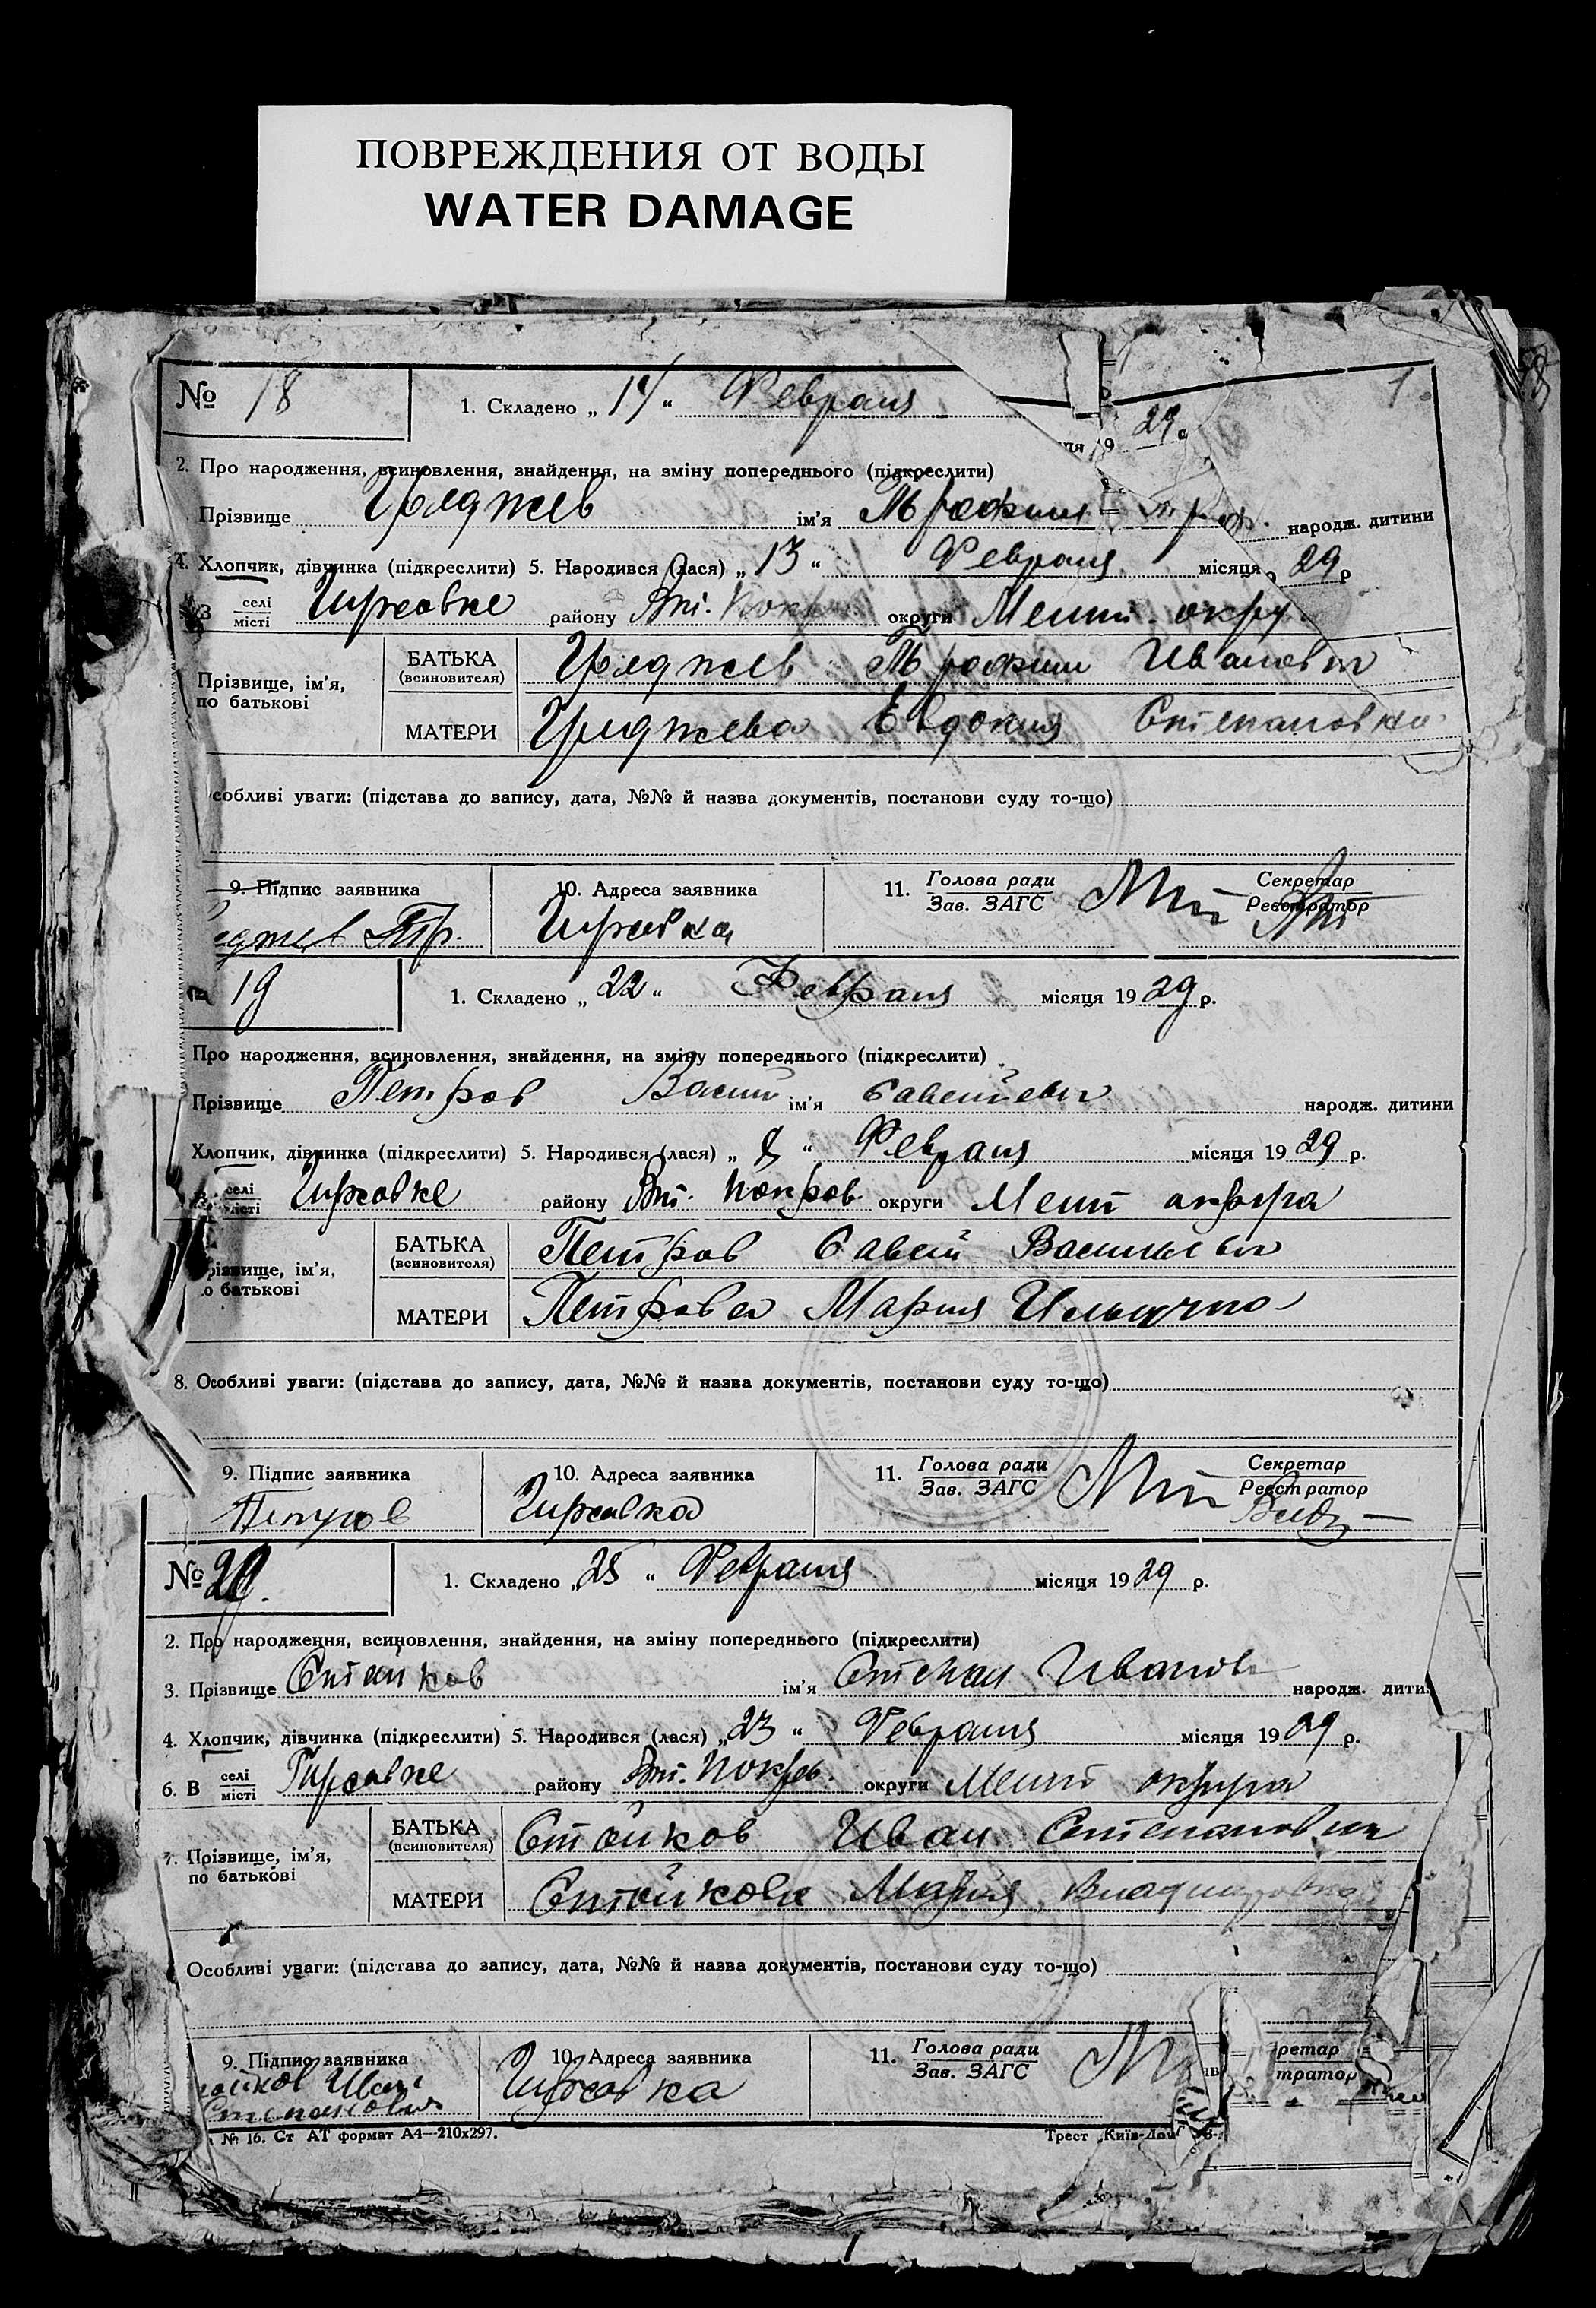 ПОВРЕЖДЕНИЯ ОТ ВОДЫ
WATER DAMAGE
1.
№ 18
1. Складено „ 14 “ Февраля ця 19 29
2. Про народження, всиновлення, знайдення, на зміну попереднього (підкреслити)
Прізвище ім'я народж. дитини
4. Хлопчик, дівчинка (підкреслити) 5. Народився (лася) „ 13 “ Февраля місяця 29 р
В селі Гиржовке району округи Мелит. окру
місті
Прізвище, ім'я, БАТЬКА Трофим Иванович
по батькові (всиновителя)
МАТЕРИ Евдокия Степановна
собливі уваги: (підстава до запису, дата, №№ й назва документів, постанови суду то-що)
9. Підпис заявника 10. Адреса заявника 11. Голова ради Секретар
Зав. ЗАГС Реєстратор
Гиржовка
19
1. Складено „ 22 “ Февраля місяця 19 29 р.
Про народження, всиновлення, знайдення, на зміну попереднього (підкреслити)
Прізвище Петров Васили ім'я Савельевич народж. дитини
Хлопчик, дівчинка (підкреслити) 5. Народився (лася) „ 8 “ Февраля місяця 19 29 р.
селі Гиржовке району Вт. Покров. округи Мелит округа
місті
різвище, ім'я, БАТЬКА Петров Савели Васильевич
о батькові (всиновителя)
МАТЕРИ Петрова Мария
8. Особливі уваги: (підстава до запису, дата, №№ й назва документів, постанови суду то-що)
9. Підпис заявника 10. Адреса заявника 11. Голова ради Секретар
Зав. ЗАГС Реєстратор
Гиржовка
№ 20.
1. Складено „ 25 “ Февраля місяця 19 29 р.
2. Про народження, всиновлення, знайдення, на зміну попереднього (підкреслити)
3. Прізвище Стойков ім'я Степан Иванов народж. дити
4. Хлопчик, дівчинка (підкреслити) 5. Народився (лася) „ 23 “ Февраля місяця 19 29 р.
6. В селі Гиржовке району Вт. Покров. округи Мелит округа
місті
7. Прізвище, ім'я, БАТЬКА Стойков Иван Степанович
по батькові (всиновителя)
МАТЕРИ Стойкова Мария Владимировна
Особливі уваги: (підстава до запису, дата, №№ й назва документів, постанови суду то-що)
9. Підпис заявника 10. Адреса заявника 11. Голова ради ретар
Зав. ЗАГС тратор
тойков Иван Гиржовка
Степанович
№ 16. Ст АТ формат А4—210х297. Трест „Київ-